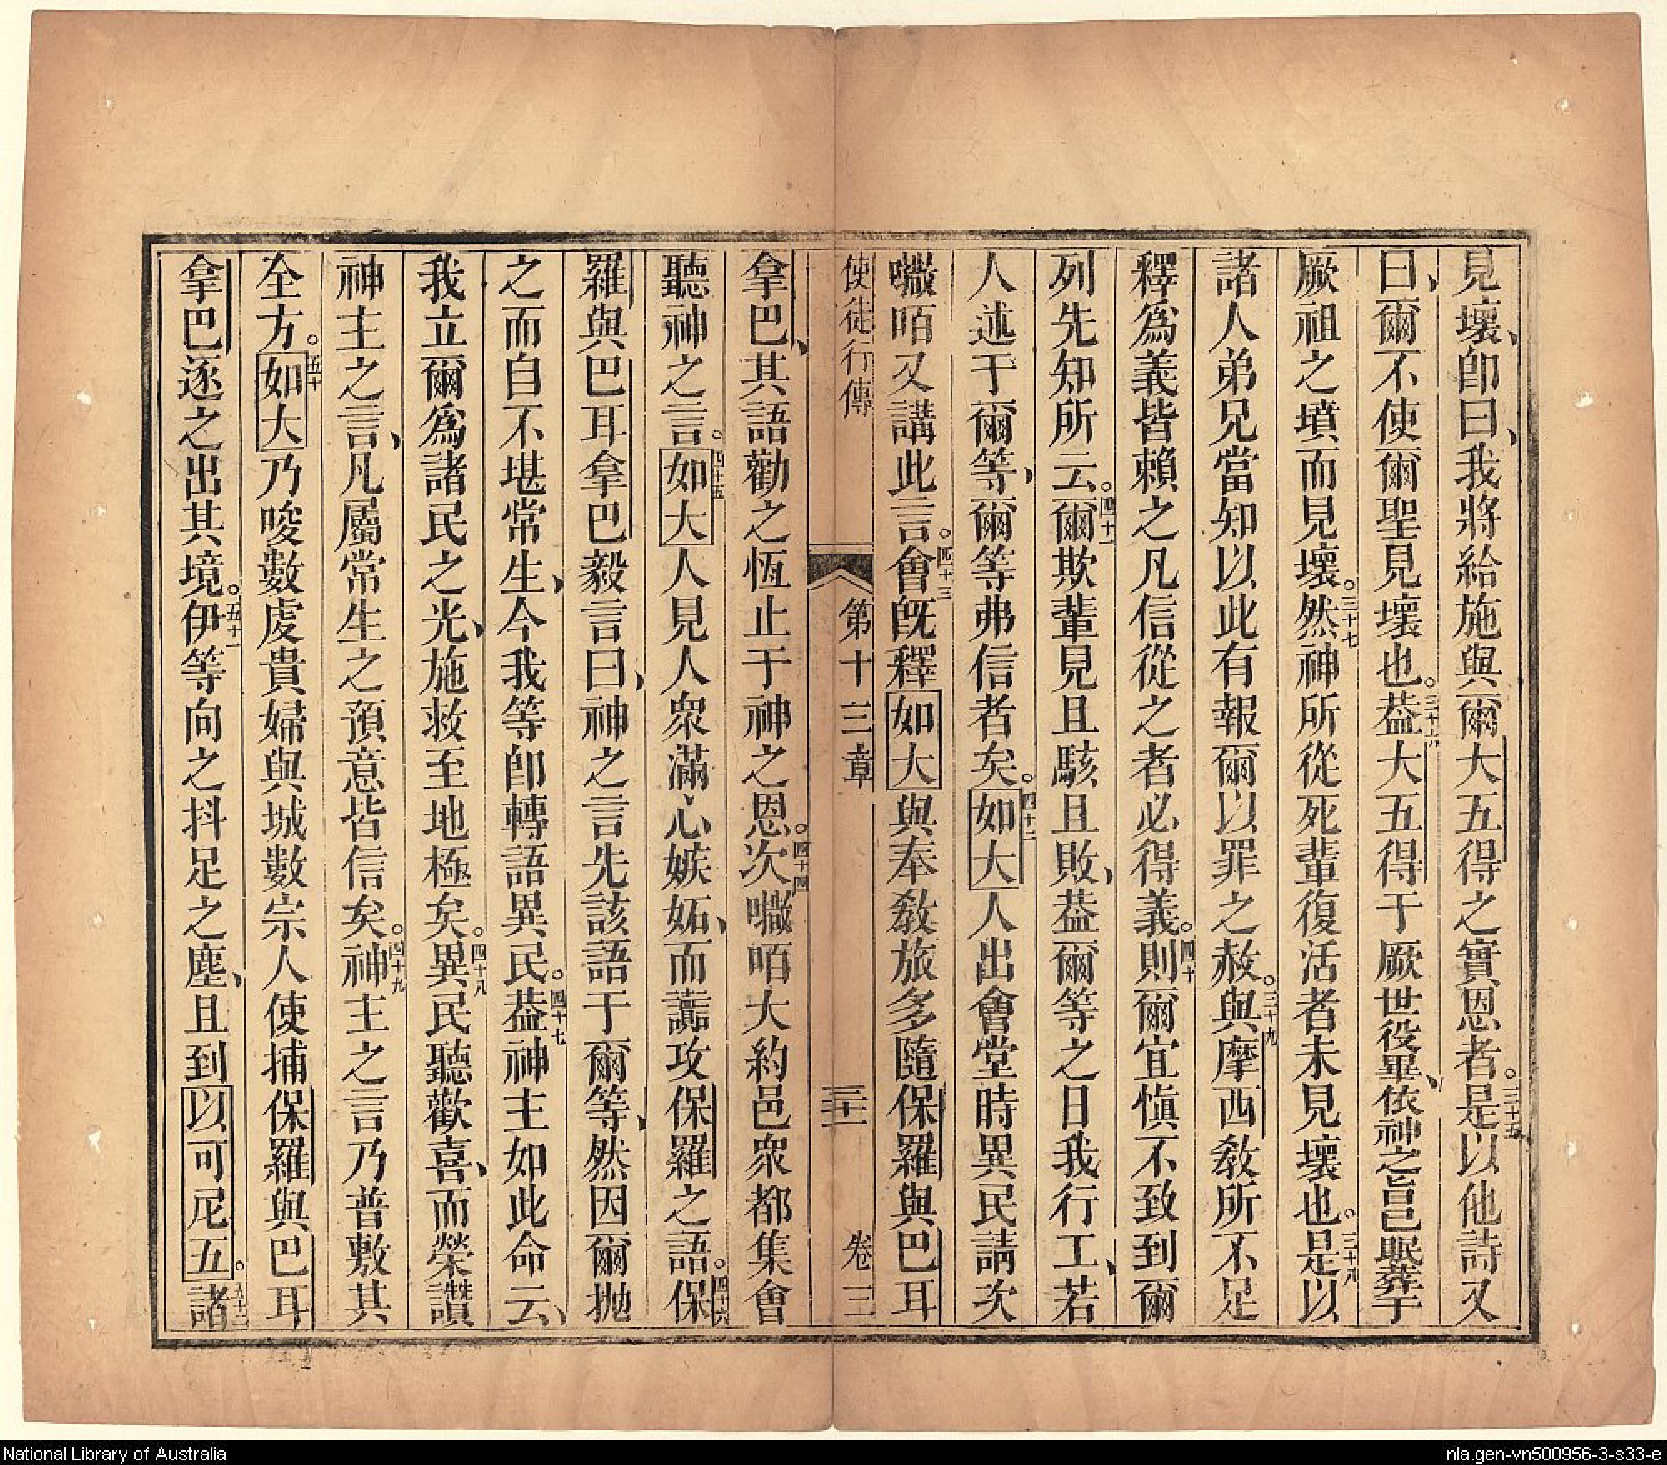 見壞、卽曰、我將給施與爾大五得之實恩者。三十五是以他詩又
曰、爾不使爾聖見壞也。三十六葢大五得于厥世役畢、依神之旨已眠葬于
厥祖之墳而見壞。三十七然神所從死輩復活者未見壞也。三十八是以
諸人弟兄當知以此有報爾以罪之赦。三十九與摩西教所不足
釋爲義皆賴之凡信從之者必得義。四十則爾宜愼不致到爾
列先知所云。四十一爾欺輩見且駭且敗、葢爾等之日我行工、若
人述于爾等、爾等弗信者矣。四十二如大人出會堂時異民請次
𡂡咟又講此言。四十三會旣釋如大與奉敎旅多隨保羅與巴耳
使徒行傳 第十三章 三十一 卷三
拿巴、其語勸之恆止于神之恩。四十四次𡂡咟大約邑衆都集會
聽神之言。四十五如大人見人衆滿心嫉妬、而讟攻保羅之語。四十六保
羅與巴耳拿巴毅言曰、神之言先該語于爾等、然因爾抛
之而自不堪常生、今我等卽轉語異民。四十七葢神主如此命云、
我立爾爲諸民之光、施救至地極矣。四十八異民聽歡喜、而榮讃
神主之言、凡屬常生之預意皆信矣。四十九神主之言乃普敷其
全方。五十如大乃唆數虔貴婦與城數宗人使捕保羅與巴耳
拿巴逐之出其境。五十一伊等向之抖足之塵、且到以可尼五。五十二諸
National Library of Australia
nla.gen-vn500956-3-s33-e